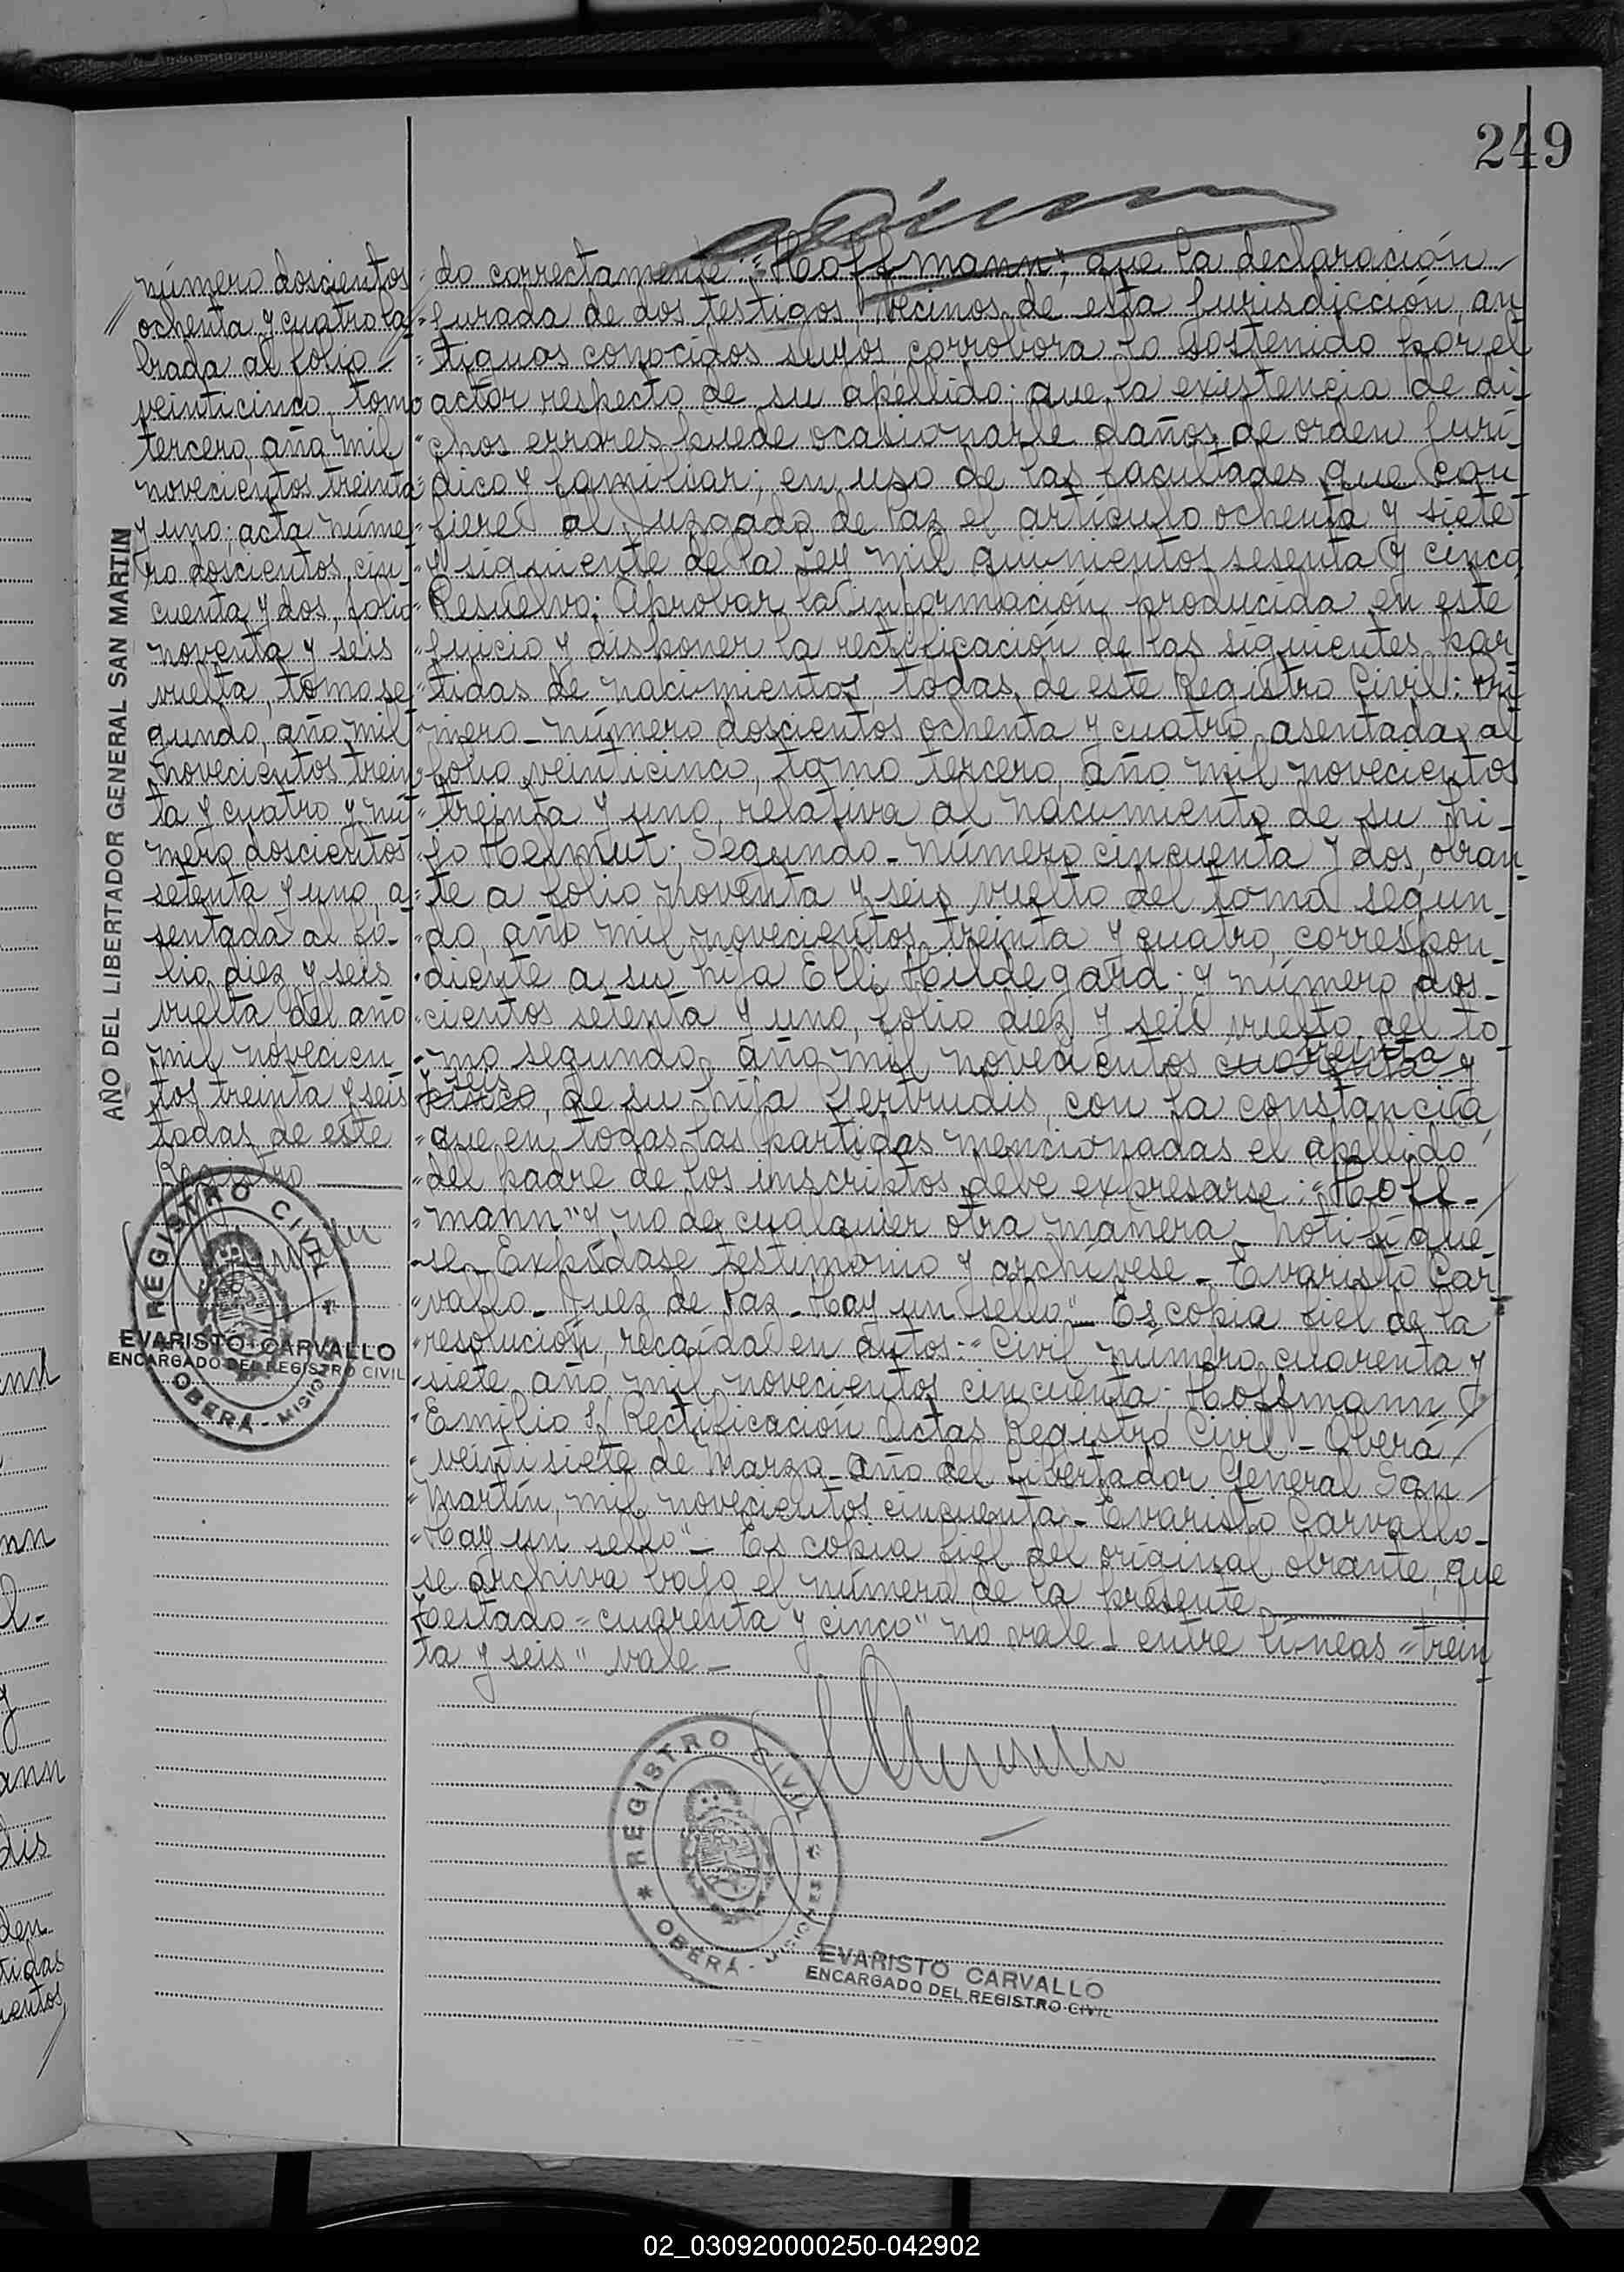 249
número doscientos
ochenta y cuatro la-
brada al folio
veinticinco, tomo
tercero, año mil
novecientos treinta
y uno; acta núme-
ro doscientos cin-
cuenta y dos, folio
noventa y seis
vuelta, tomo se-
gundo, año mil
novecientos trein-
ta y cuatro y nú-
mero doscientos
setenta y uno, a-
sentada al fo-
lio diez y seis
vuelta del año
mil novecien
tos treinta y seis
todas de este
Registro
AÑO DEL LIBERTADOR GENERAL SAN MARTIN
REGISTRO CIVIL
OBERÁ - MISIONES
EVARISTO CARVALLO
ENCARGADO DEL REGISTRO CIVIL
"do correctamente: "Hoffmann"; que la declaración
"jurada de dos testigos, vecinos de esta jurisdicción, an-
"tiguos conocidos suyos corrobora lo sostenido por el
"actor respecto de su apellido; que la existencia de di-
"chos errores puede ocasionarle daños de orden jurí-
"dico y familiar; en uso de las facultades que con-
"fiere al Juzgado de Paz el artículo ochenta y siete
"y siguiente de la Ley mil quinientos sesenta y cinco,
"Resuelvo: Aprobar la información producida en este
"juicio y disponer la rectificación de las siguientes par-
"tidas de nacimientos, todas de este Registro Civil: Pri-
"mero - número doscientos ochenta y cuatro, asentada al
"folio veinticinco, tomo tercero, año mil novecientos
"treinta y uno, relativa al nacimiento de su hi-
"jo Helmut; Segundo - número cincuenta y dos, obran-
"te a folio noventa y seis vuelto del tomo segun-
"do, año mil novecientos treinta y cuatro, correspon-
"diente a su hija Elli Hildegard; y número dos-
"cientos setenta y uno, folio diez y seis vuelto, del to-
"mo segundo, año mil novecientos cuarenta treinta y
"cinco y seis, de su hija Gertrudis, con la constancia
"que en todas las partidas mencionadas el apellido
"del padre de los inscriptos debe expresarse: "Hoff-
"mann" y no de cualquier otra manera - Notifíque-
"se - Expídase testimonio y archívese - Evaristo Car-
"vallo - Juez de Paz - Hay un sello" - Es copia fiel de la
"resolución recaída en autos: "Civil número cuarenta y
"siete año mil novecientos cincuenta; Hoffmann
"Emilio s/ Rectificación Actas Registro Civil - Oberá
"veintisiete de Marzo - año del Libertador General San
"Martín, mil novecientos cincuenta - Evaristo Carvallo -
"Hay un sello" - Es copia fiel del original obrante, que
se archiva bajo el número de la presente
Testado "cuarenta y cinco" no vale - entre líneas "trein
ta y seis" vale -
REGISTRO CIVIL
OBERÁ - MISIONES
EVARISTO CARVALLO
ENCARGADO DEL REGISTRO CIVIL
02_030920000250-042902